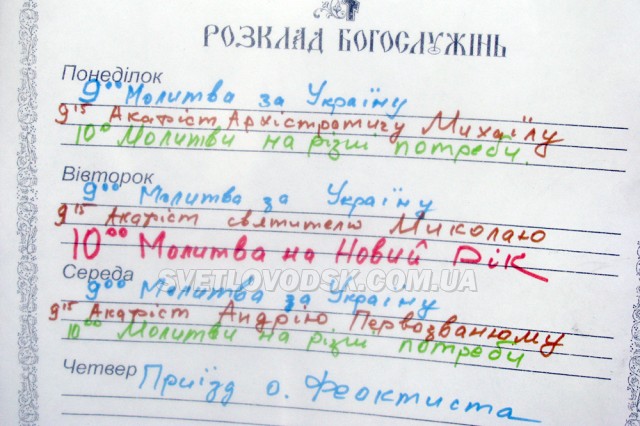 РОЗКЛАД БОГОСЛУЖІНЬ
Понеділок
9⁰⁰ Молитва за Україну
9¹⁵ Акафіст Архістратигу Михаїлу
10⁰⁰ Молитви на різні потреби.
Вівторок
9⁰⁰ Молитва за Україну
9¹⁵ Акафіст святителю Миколаю
10⁰⁰ Молитва на Новий Рік
SVETLOVODSK.COM.UA
Середа
9⁰⁰ Молитва за Україну
9¹⁵ Акафіст Андрію Первозванному
10⁰⁰ Молитви на різні потреби
Четвер
Приїзд о. Феоктиста